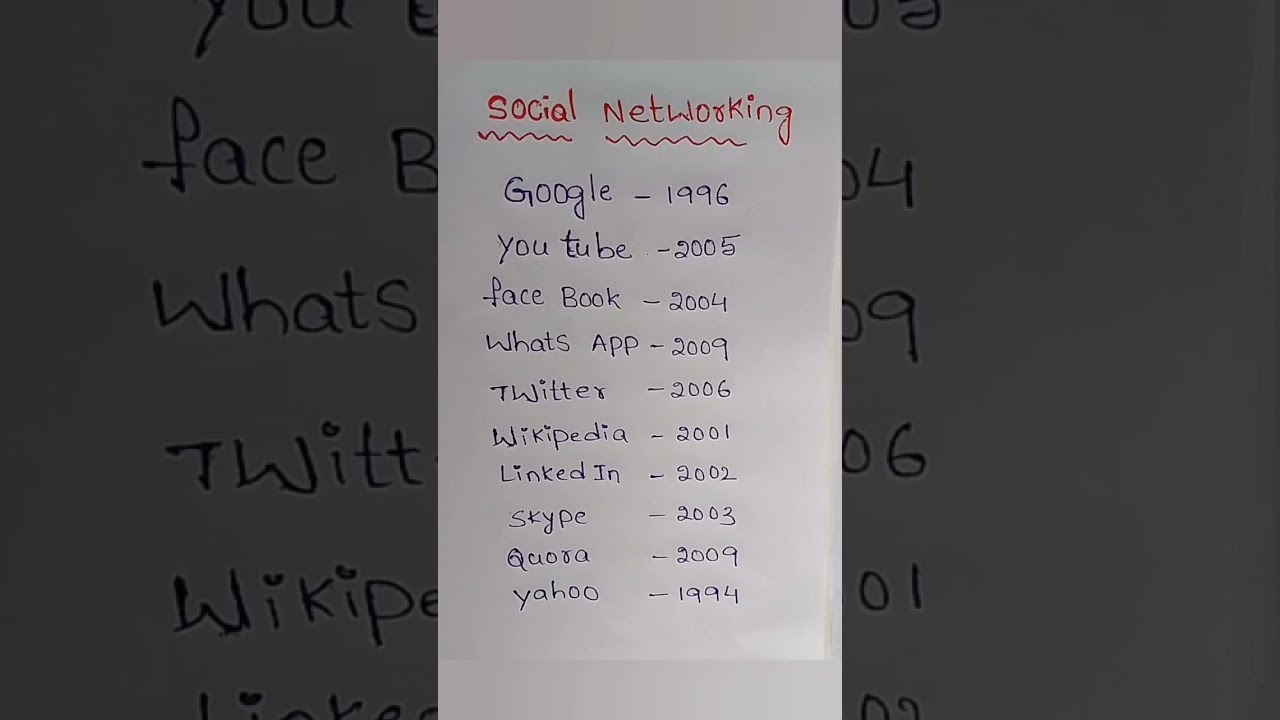 Social Networking
Google - 1996
you tube - 2005
face Book - 2004
Whats App - 2009
Twitter - 2006
Wikipedia - 2001
Linked In - 2002
Skype - 2003
Quora - 2009
yahoo - 1994